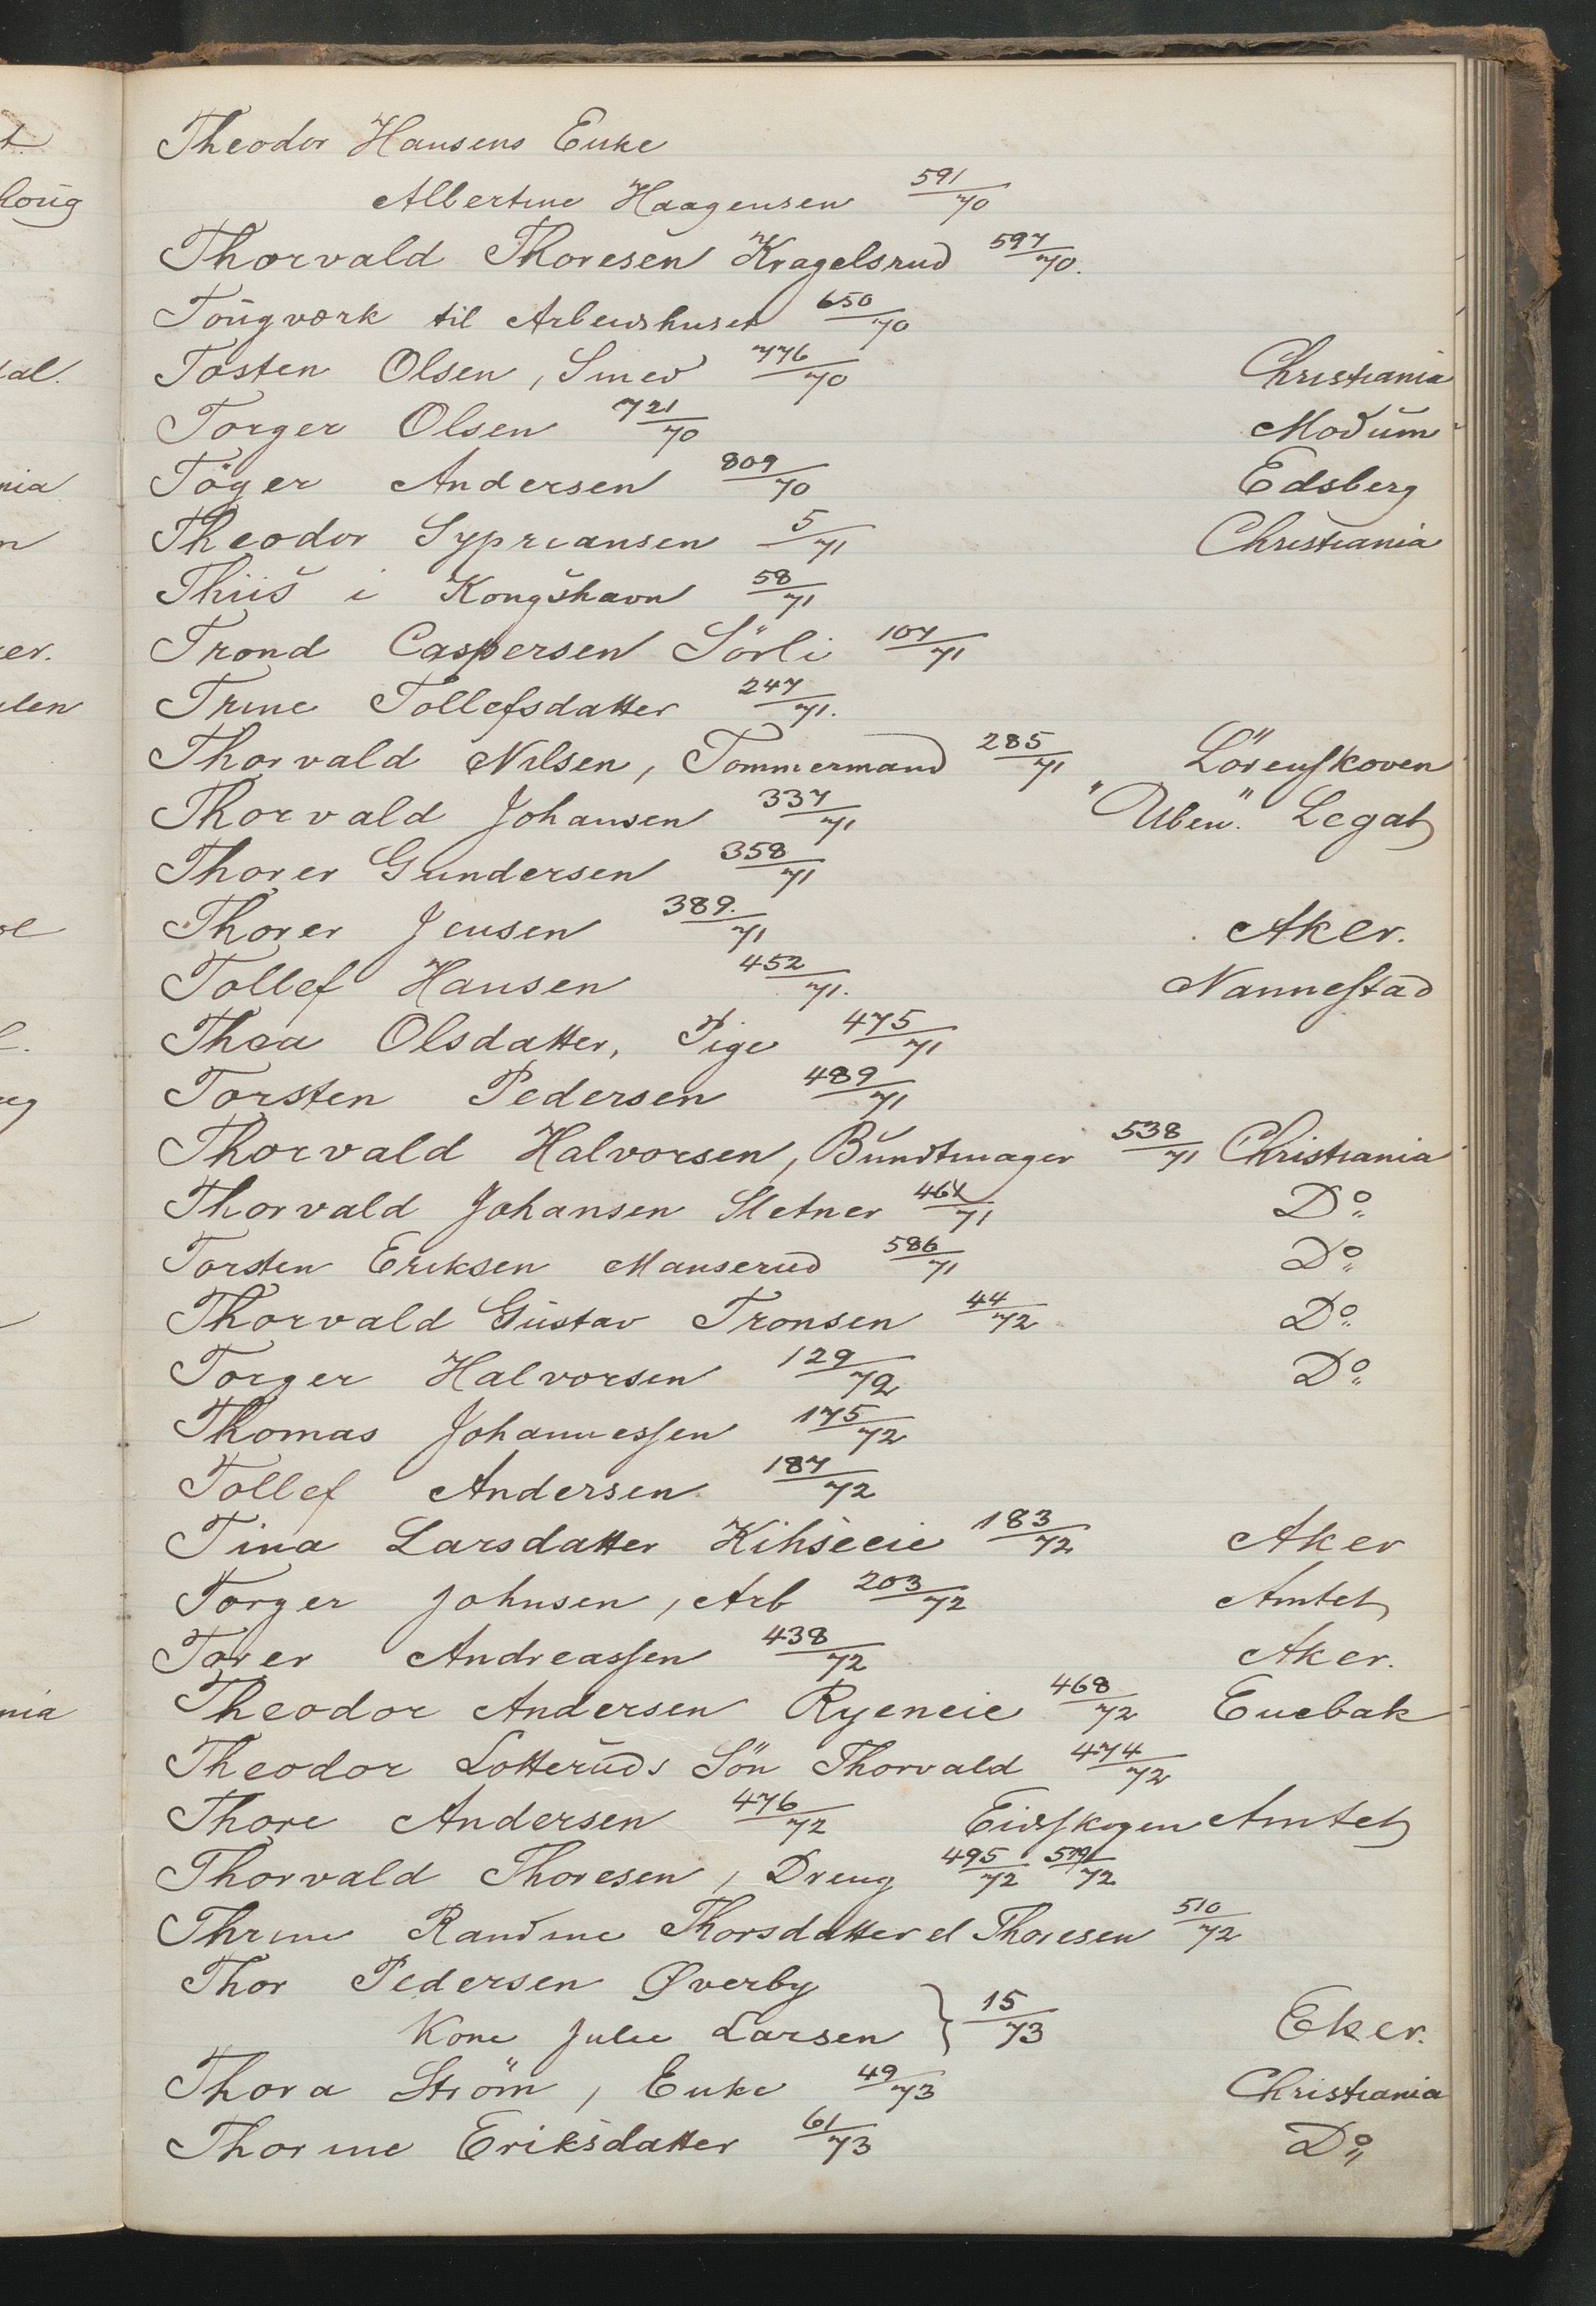 Theodor Hansens Enke
Albertine Haagensen 591/70
Thorvald Thoresen Kragelsrud 597/70.
Tougværk til Arbeidshuset 650/70
Tosten Olsen, Smed 776/70 Christiania
Torger Olsen 721/70 Modum
Töger Andersen 809/70 Edsberg
Theodor Sypriansen 5/71 Christiania
Thiis i Kongshavn 58/71
Trond Caspersen Sörli 107/71
Trine Tollefsdatter 247/71.
Thorvald Nilsen, Tommermand 285/71 Lörenskoven
Thorvald Johansen 337/71 "Uben." Legat
Thorer Gundersen 358/71
Thorer Jensen 389./71 Aker.
Tollef Hansen 452/71. Nannestad
Thea Olsdatter, Pige 475/71
Torsten Pedersen 489/71
Thorvald Halvorsen, Buntmager 538/71 Christiania
Thorvald Johansen Sletner 464/71 Do
Torsten Eriksen Manserud 586/71 Do
Thorvald Gustav Tronsen 44/72 Do
Torger Halvorsen 129/72 Do
Thomas Johannessen 175/72
Tollef Andersen 187/72
Tina Larsdatter 183/72 Aker
Torger Johnsen, Arb 203/72 Amtet
Torer Andreassen 438/72 Aker.
Theodor Andersen Ryeneie 468/72 Enebak
Theodor Lotteruds Sön Thorvald 474/72
Thore Andersen 476/72 Eidskogen Amtet
Thorvald Thoresen, Dreng 495/72 /72
Thrine Randine Thorsdatter el Thoresen 510/72
Thor Pedersen Øverby
Kone Julie Larsen } 15/73 Eker.
Thora Ström, Enke 49/73 Christiania
Thorine Eriksdatter 61/73 Do